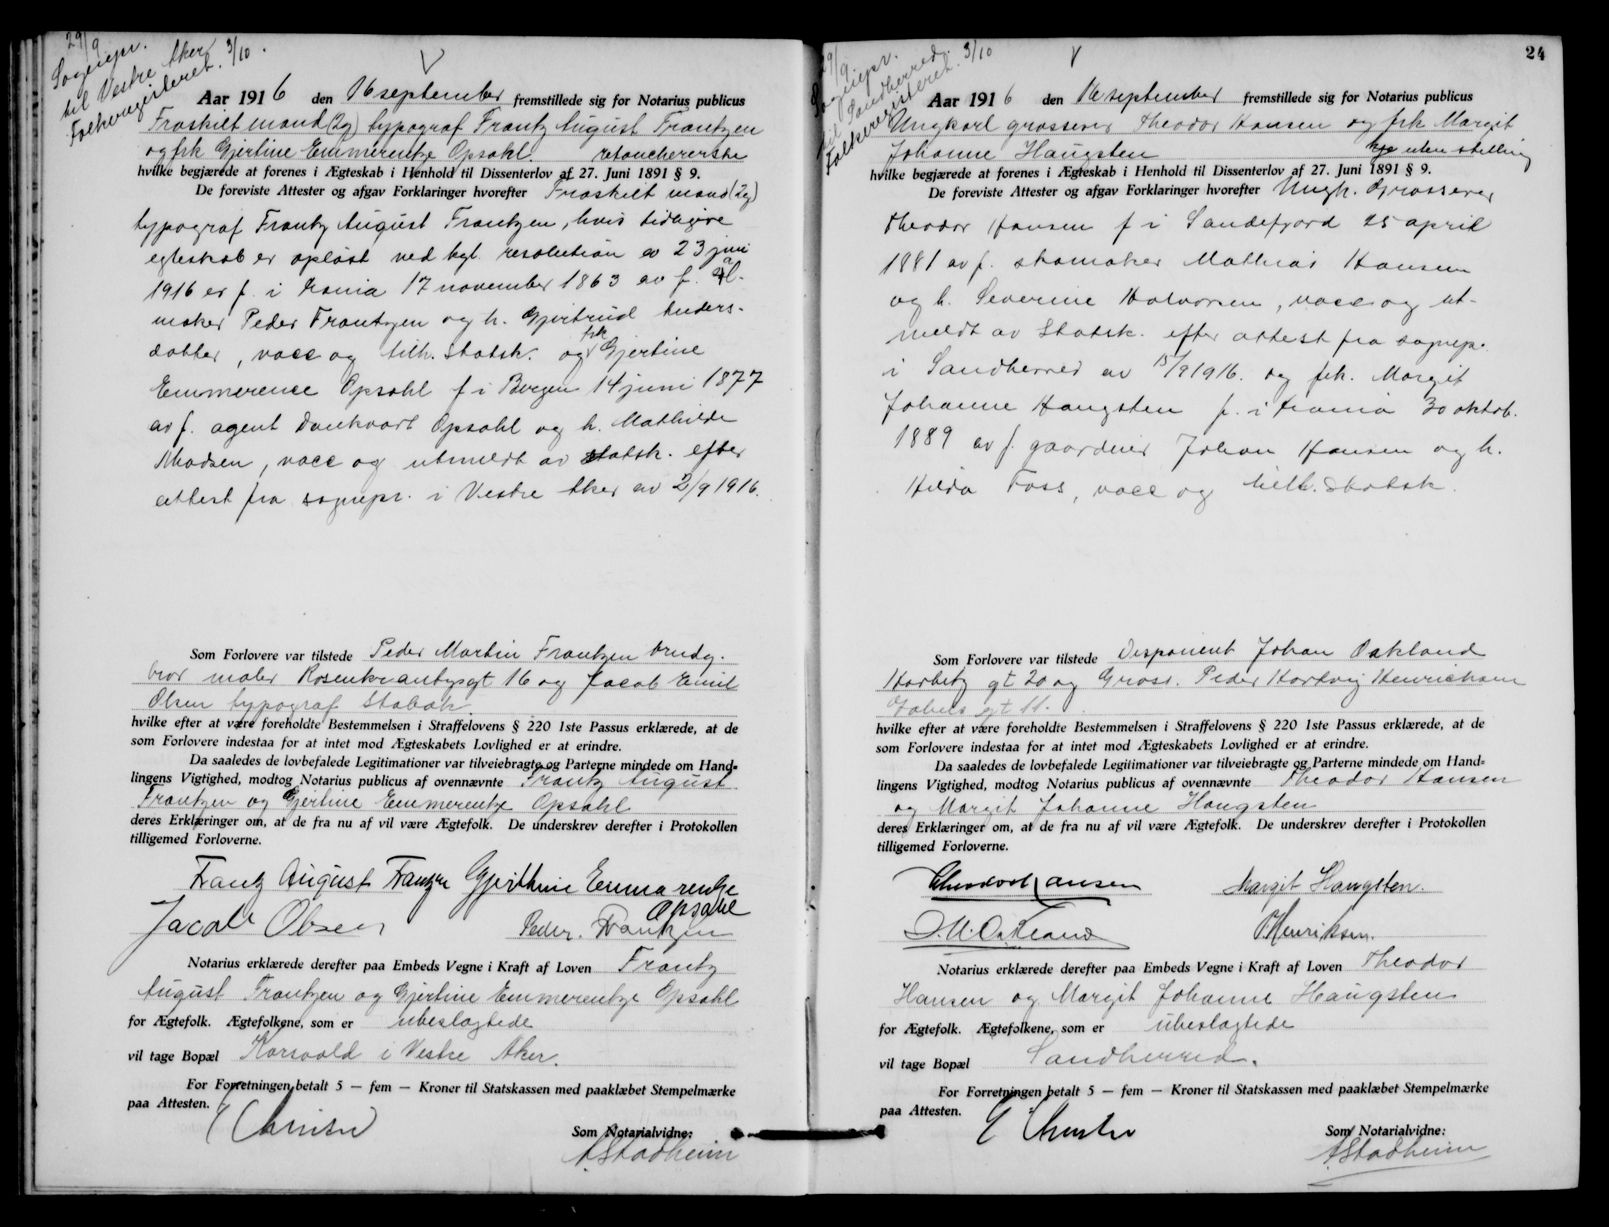 29/9
Sognepr.
til Vestre Aker
Folkeregisteret. 3/10.
Aar 1916 den 16 september fremstillede sig for Notarius publicus
Fraskilt mand (2g) typograf Frantz August Frantzen
og frk Gjertine Emmerentze Opsahl. retouchererske
hvilke begjærede at forenes i Ægteskab i Henhold til Dissenterlov af 27. Juni 1891 § 9.
De foreviste Attester og afgav Forklaringer hvorefter Fraskilt mand (2g)
typograf Frantz August Frantzen, hvis tidligere
egteskab er opløst ved kgl. resolution av 23 juni
1916 er f. i Krania 17 november 1863 av f.
maker Peder Frantzen og h. Gjertrud Anders-
datter, vacc og tilh. Statsk. og frk Gjertine
Emmerence Opsahl f i Bergen 14 juni 1877
av f. agent Dankvart Opsahl og h. Mathilde
Madsen, vacc og utmeldt av statsk. efter
attest fra sognepr. i Vestre Aker av 2/9 1916.
Som Forlovere var tilstede Peder Martin Frantzen brudg.
bror maler Rosenkrantzsgt 16 og Jacob Emil
Olsen typograf Stabæk.
hvilke efter at være foreholdte Bestemmelsen i Straffelovens § 220 1ste Passus erklærede, at de
som Forlovere indestaa for at intet mod Ægteskabets Lovlighed er at erindre.
Da saaledes de lovbefalede Legitimationer var tilveiebragte og Parterne mindede om Hand-
lingens Vigtighed, modtog Notarius publicus af ovennævnte Frantz August
Frantzen og Gjertine Emmerentze Opsahl
deres Erklæringer om, at de fra nu af vil være Ægtefolk. De underskrev derefter i Protokollen
tilligemed Forloverne.
Frantz August Frantzen Gjerthine Emmarentze
Opsahl
Jacob Olsen Peder. Frantzen
Notarius erklærede derefter paa Embeds Vegne i Kraft af Loven Frantz
August Frantzen og Gjertine Emmerentze Opsahl
for Ægtefolk. Ægtefolkene, som er ubeslægtede
vil tage Bopæl Korsvold i Vestre Aker.
For Forretningen betalt 5 — fem — Kroner til Statskassen med paaklæbet Stempelmærke
paa Attesten.
Som Notarialvidne:
AStadheim
24
29/9.
Sognepr.
til Sandherred.
Folkeregisteret. 3/10
Aar 1916 den 16 september fremstillede sig for Notarius publicus
Ungkarl grosserer Theodor Hansen og frk Margit
Johanne Haugsten uten stilling
hvilke begjærede at forenes i Ægteskab i Henhold til Dissenterlov af 27. Juni 1891 § 9.
De foreviste Attester og afgav Forklaringer hvorefter Ungk. Grosserer
Theodor Hansen f i Sandefjord 25 april
1881 av f. skomaker Mathias Hansen
og h. Severine Halvorsen, vacc og ut-
meldt av Statsk. efter attest fra sognep.
i Sandherred av 15/9 1916. og frk. Margit
Johanne Haugsten f. i Krania 30 oktob.
1889 av f. gaardeier Johan Hansen og h.
Hilda Foss, vacc og tilh. Statsk.
Som Forlovere var tilstede Disponent Johan Oakland
Harbitz gt 20 og Gross. Peder Hartvig Henriksen
gt 11.
hvilke efter at være foreholdte Bestemmelsen i Straffelovens § 220 1ste Passus erklærede, at de
som Forlovere indestaa for at intet mod Ægteskabets Lovlighed er at erindre.
Da saaledes de lovbefalede Legitimationer var tilveiebragte og Parterne mindede om Hand-
lingens Vigtighed, modtog Notarius publicus af ovennævnte Theodor Hansen
og Margit Johanne Haugsten
deres Erklæringer om, at de fra nu af vil være Ægtefolk. De underskrev derefter i Protokollen
tilligemed Forloverne.
Theodor Hansen Margit Haugsten.
J.M. Oakland P. Henriksen.
Notarius erklærede derefter paa Embeds Vegne i Kraft af Loven Theodor
Hansen og Margit Johanne Haugsten
for Ægtefolk. Ægtefolkene, som er ubeslægtede
vil tage Bopæl Sandherred.
For Forretningen betalt 5 — fem — Kroner til Statskassen med paaklæbet Stempelmærke
paa Attesten.
Som Notarialvidne:
AStadheim